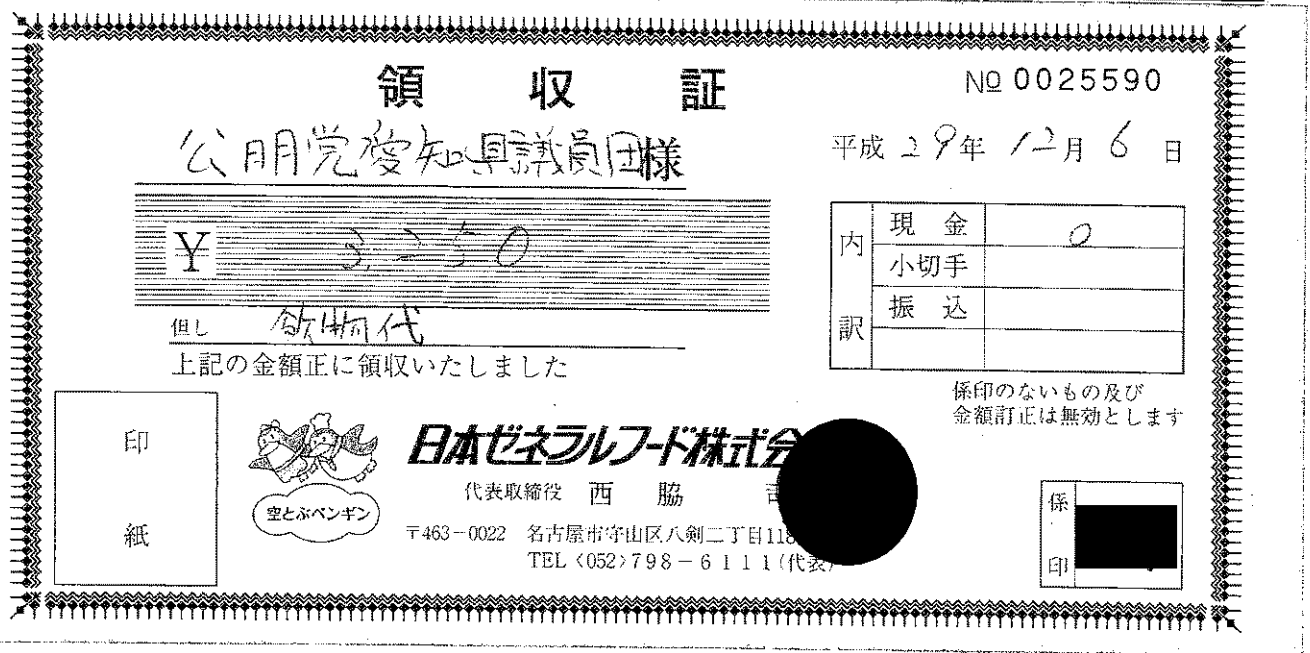 領 収 証
№ 0025590
公明党愛知県議員団様
平成 29年 12月 6日
¥ 3,250
内訳
現金 0
小切手
振込
但し 飲物代
上記の金額正に領収いたしました
係印のないもの及び
金額訂正は無効とします
印紙
空とぶペンギン
日本ゼネラルフード株式会
代表取締役 西 脇 司
〒463-0022 名古屋市守山区八剣二丁目118
TEL〈052〉798-6111(代表)
係印